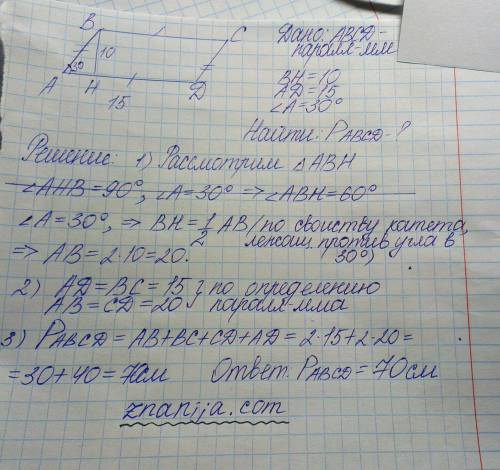 B
C
10
A 30°
H
D
15
Дано: ABCD-
паралл-мм
BH=10
AD=15
∠A=30°
Найти: P ABCD-?
Решение: 1) Рассмотрим △ABH
∠AHB=90°, ∠A=30° => ∠ABH=60°
∠A=30°, => BH=1/2 AB (по свойству катета,
лежащ. против угла в
30°)
=> AB=2·10=20.
2) AD=BC=15 } по определению
AB=CD=20 } паралл-мма
3) P ABCD=AB+BC+CD+AD=2·15+2·20=
=30+40=70см Ответ: P ABCD=70см
znanija.com